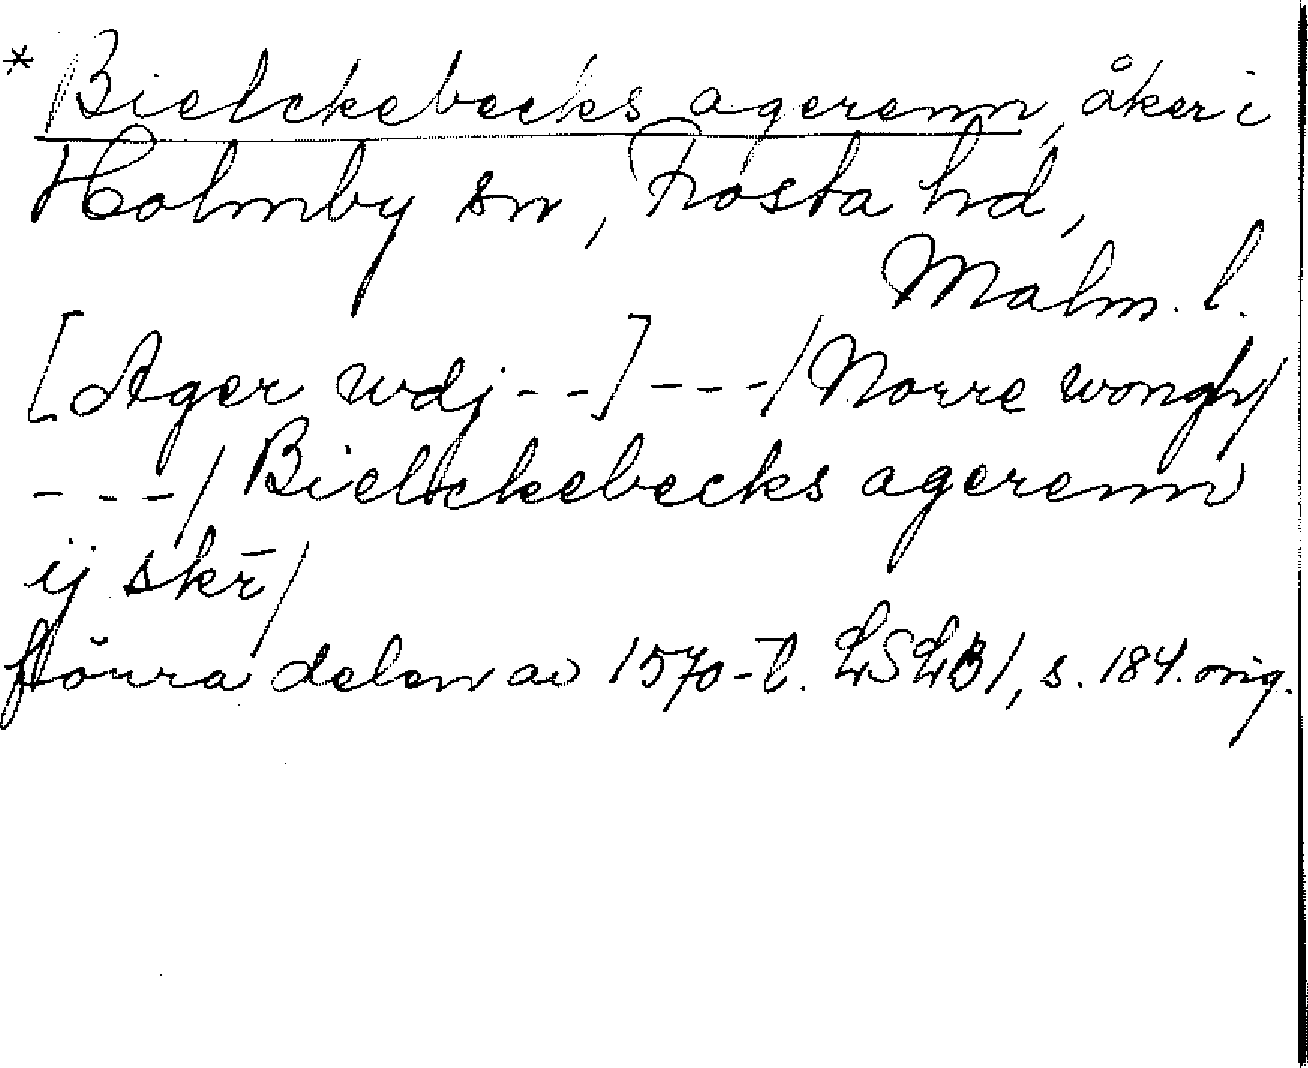 * Bielckebecks agerenn, åker i
Holmby sn, Frosta hd,
Malm. l.
[Ager wdj - -] - - - / Norre wongh /
- - - / Bielckebecks agerenn
ij skr̄ /
förra delen av 1570-t. LSLB1, s. 184. orig.